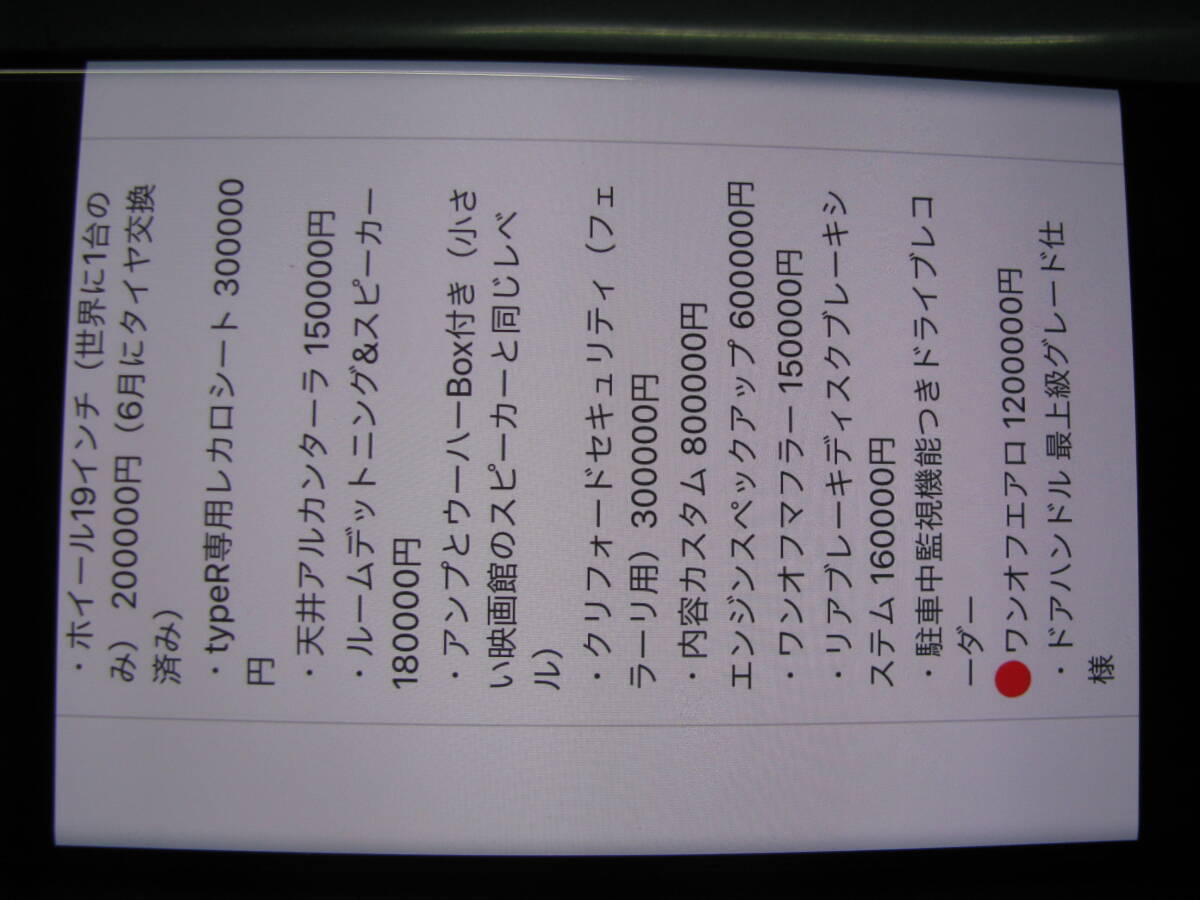 ・ホイール19インチ（世界に1台の
み） 2000000円（6月にタイヤ交換
済み）
・typeR専用レカロシート 300000
円
・天井アルカンターラ 150000円
・ルームデットニング&スピーカー
180000円
・アンプとウーハーBox付き（小さ
い映画館のスピーカーと同じレベ
ル）
・クリフォードセキュリティ（フェ
ラーリ用）300000円
・内容カスタム 800000円
エンジンスペックアップ 600000円
・ワンオフマフラー 150000円
・リアブレーキディスクブレーキシ
ステム 160000円
・駐車中監視機能つきドライブレコ
ーダー
ワンオフエアロ 1200000円
・ドアハンドル 最上級グレード仕
様